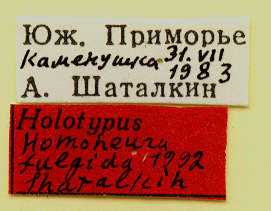 Юж. Приморье
Каменушка 31.VII
1983
А. Шаталкин
Holotypus
Homoneura
fulgida 1992
Shatalkin